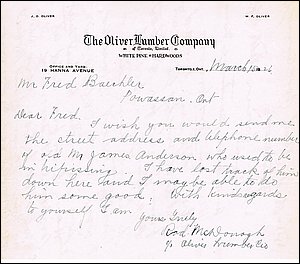 J. D. OLIVER
W. F. OLIVER
The Oliver Lumber Company
of Toronto, Limited.
WHITE PINE & HARDWOODS
OFFICE AND YARD:
19 HANNA AVENUE
TORONTO, ONT.
March 15 26
Mr Fred Baechler
Powassan. Ont
Dear Fred.
I wish you would send me
the street address and telephone number
of old Mr James Anderson who used to be
in Nipissing. I have lost track of him
down here and I may be able to do
him some good. With kind regards
to yourself I am
Yours Truly
Rod McDonogh
c/o Oliver Lumber Co